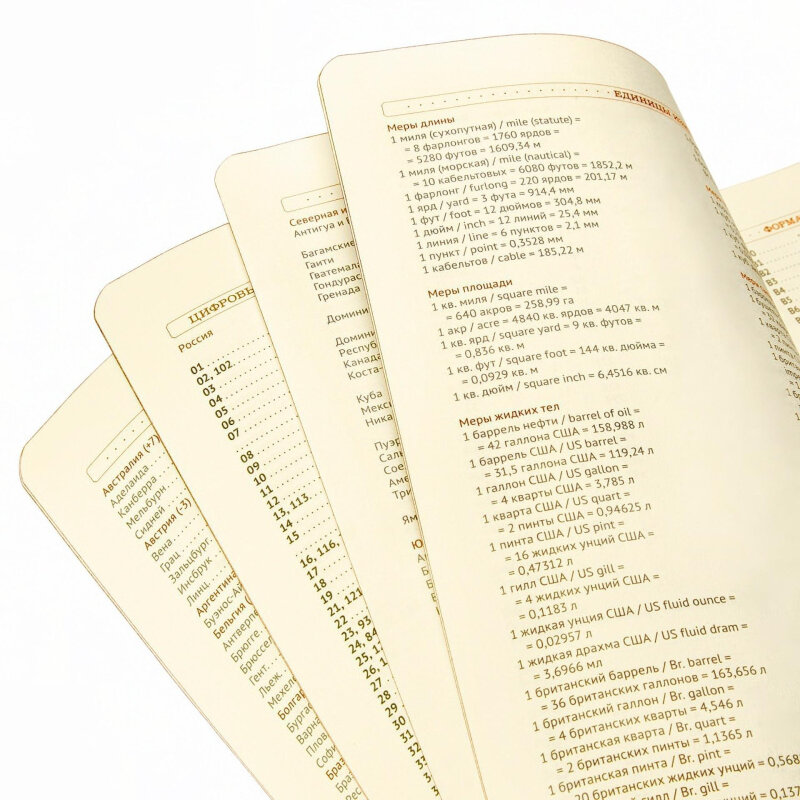 ЕДИНИЦЫ
Меры длины
1 миля (сухопутная) / mile (statute) =
= 8 фарлонгов = 1760 ярдов =
= 5280 футов = 1609,34 м
1 миля (морская) / mile (nautical) =
= 10 кабельтовых = 6080 футов = 1852,2 м
1 фарлонг / furlong = 220 ярдов = 201,17 м
1 ярд / yard = 3 фута = 914,4 мм
1 фут / foot = 12 дюймов = 304,8 мм
1 дюйм / inch = 12 линий = 25,4 мм
1 линия / line = 6 пунктов = 2,1 мм
1 пункт / point = 0,3528 мм
1 кабельтов / cable = 185,22 м
Меры площади
1 кв. миля / square mile =
= 640 акров = 258,99 га
1 акр / acre = 4840 кв. ярдов = 4047 кв. м
1 кв. ярд / square yard = 9 кв. футов =
= 0,836 кв. м
1 кв. фут / square foot = 144 кв. дюйма =
= 0,0929 кв. м
1 кв. дюйм / square inch = 6,4516 кв. см
Меры жидких тел
1 баррель нефти / barrel of oil =
= 42 галлона США = 158,988 л
1 баррель США / US barrel =
= 31,5 галлона США = 119,24 л
1 галлон США / US gallon =
= 4 кварты США = 3,785 л
1 кварта США / US quart =
= 2 пинты США = 0,94625 л
1 пинта США / US pint =
= 16 жидких унций США =
= 0,47312 л
1 гилл США / US gill =
= 4 жидких унций США =
= 0,1183 л
1 жидкая унция США / US fluid ounce =
= 0,02957 л
1 жидкая драхма США / US fluid dram =
= 3,6966 мл
1 британский баррель / Br. barrel =
= 36 британских галлонов = 163,656 л
1 британский галлон / Br. gallon =
= 4 британских кварты = 4,546 л
1 британская кварта / Br. quart =
= 2 британских пинты = 1,1365 л
1 британская пинта / Br. pint =
= 20 британских жидких унций = 0,568
гилл / Br. gill =
= 0,137
Северная и
Антигуа и
Багамские
Гаити
Гватемал
Гондурас
Гренада
Домини
Домини
Респуб
Канад
Коста-
Куба
Мекс
Ника
Пуэр
Саль
Сое
Аме
Три
Ям
Ю
ЦИФРОВЫ
Россия
01
02, 102
03
04
05
06
07
08
09
10
11
12
13, 113
14
15
16, 116,
17
18
19
21, 121
22
23, 93
24, 84
25, 1
26, 1
27
28
29
30
31
32
33
Австралия (+7)
Аделаида
Канберра
Мельбурн
Сидней
Австрия (-3)
Вена
Грац
Зальцбург
Инсбрук
Линц
Аргентина
Буэнос-Ай
Бельгия
Антверпе
Брюгге
Брюссел
Гент
Льеж
Мехеле
Болгар
Бургас
Варна
Плов
Софи
Браз
ФОРМА
B2
B3
B4
B5
B6